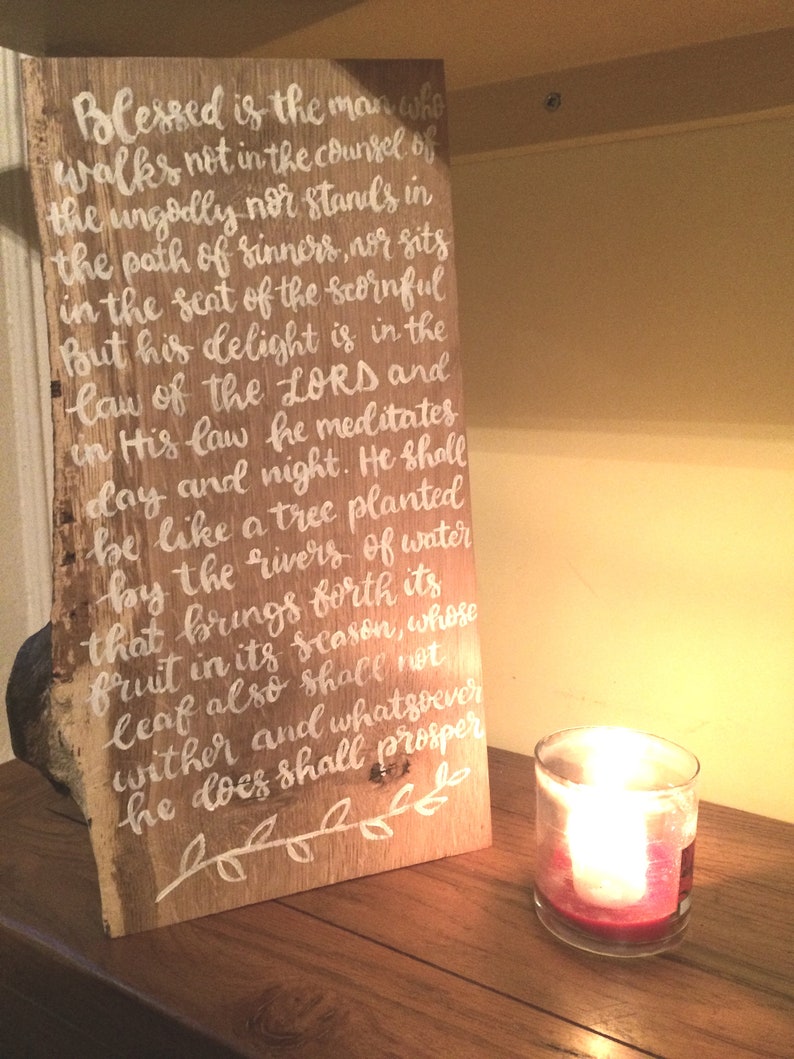 Blessed is the man who
walks not in the counsel of
the ungodly nor stands in
the path of sinners, nor sits
in the seat of the scornful
But his delight is in the
law of the LORD and
in His law he meditates
day and night. He shall
be like a tree planted
by the rivers of water
that brings forth its
fruit in its season, whose
leaf also shall not
wither and whatsoever
he does shall prosper